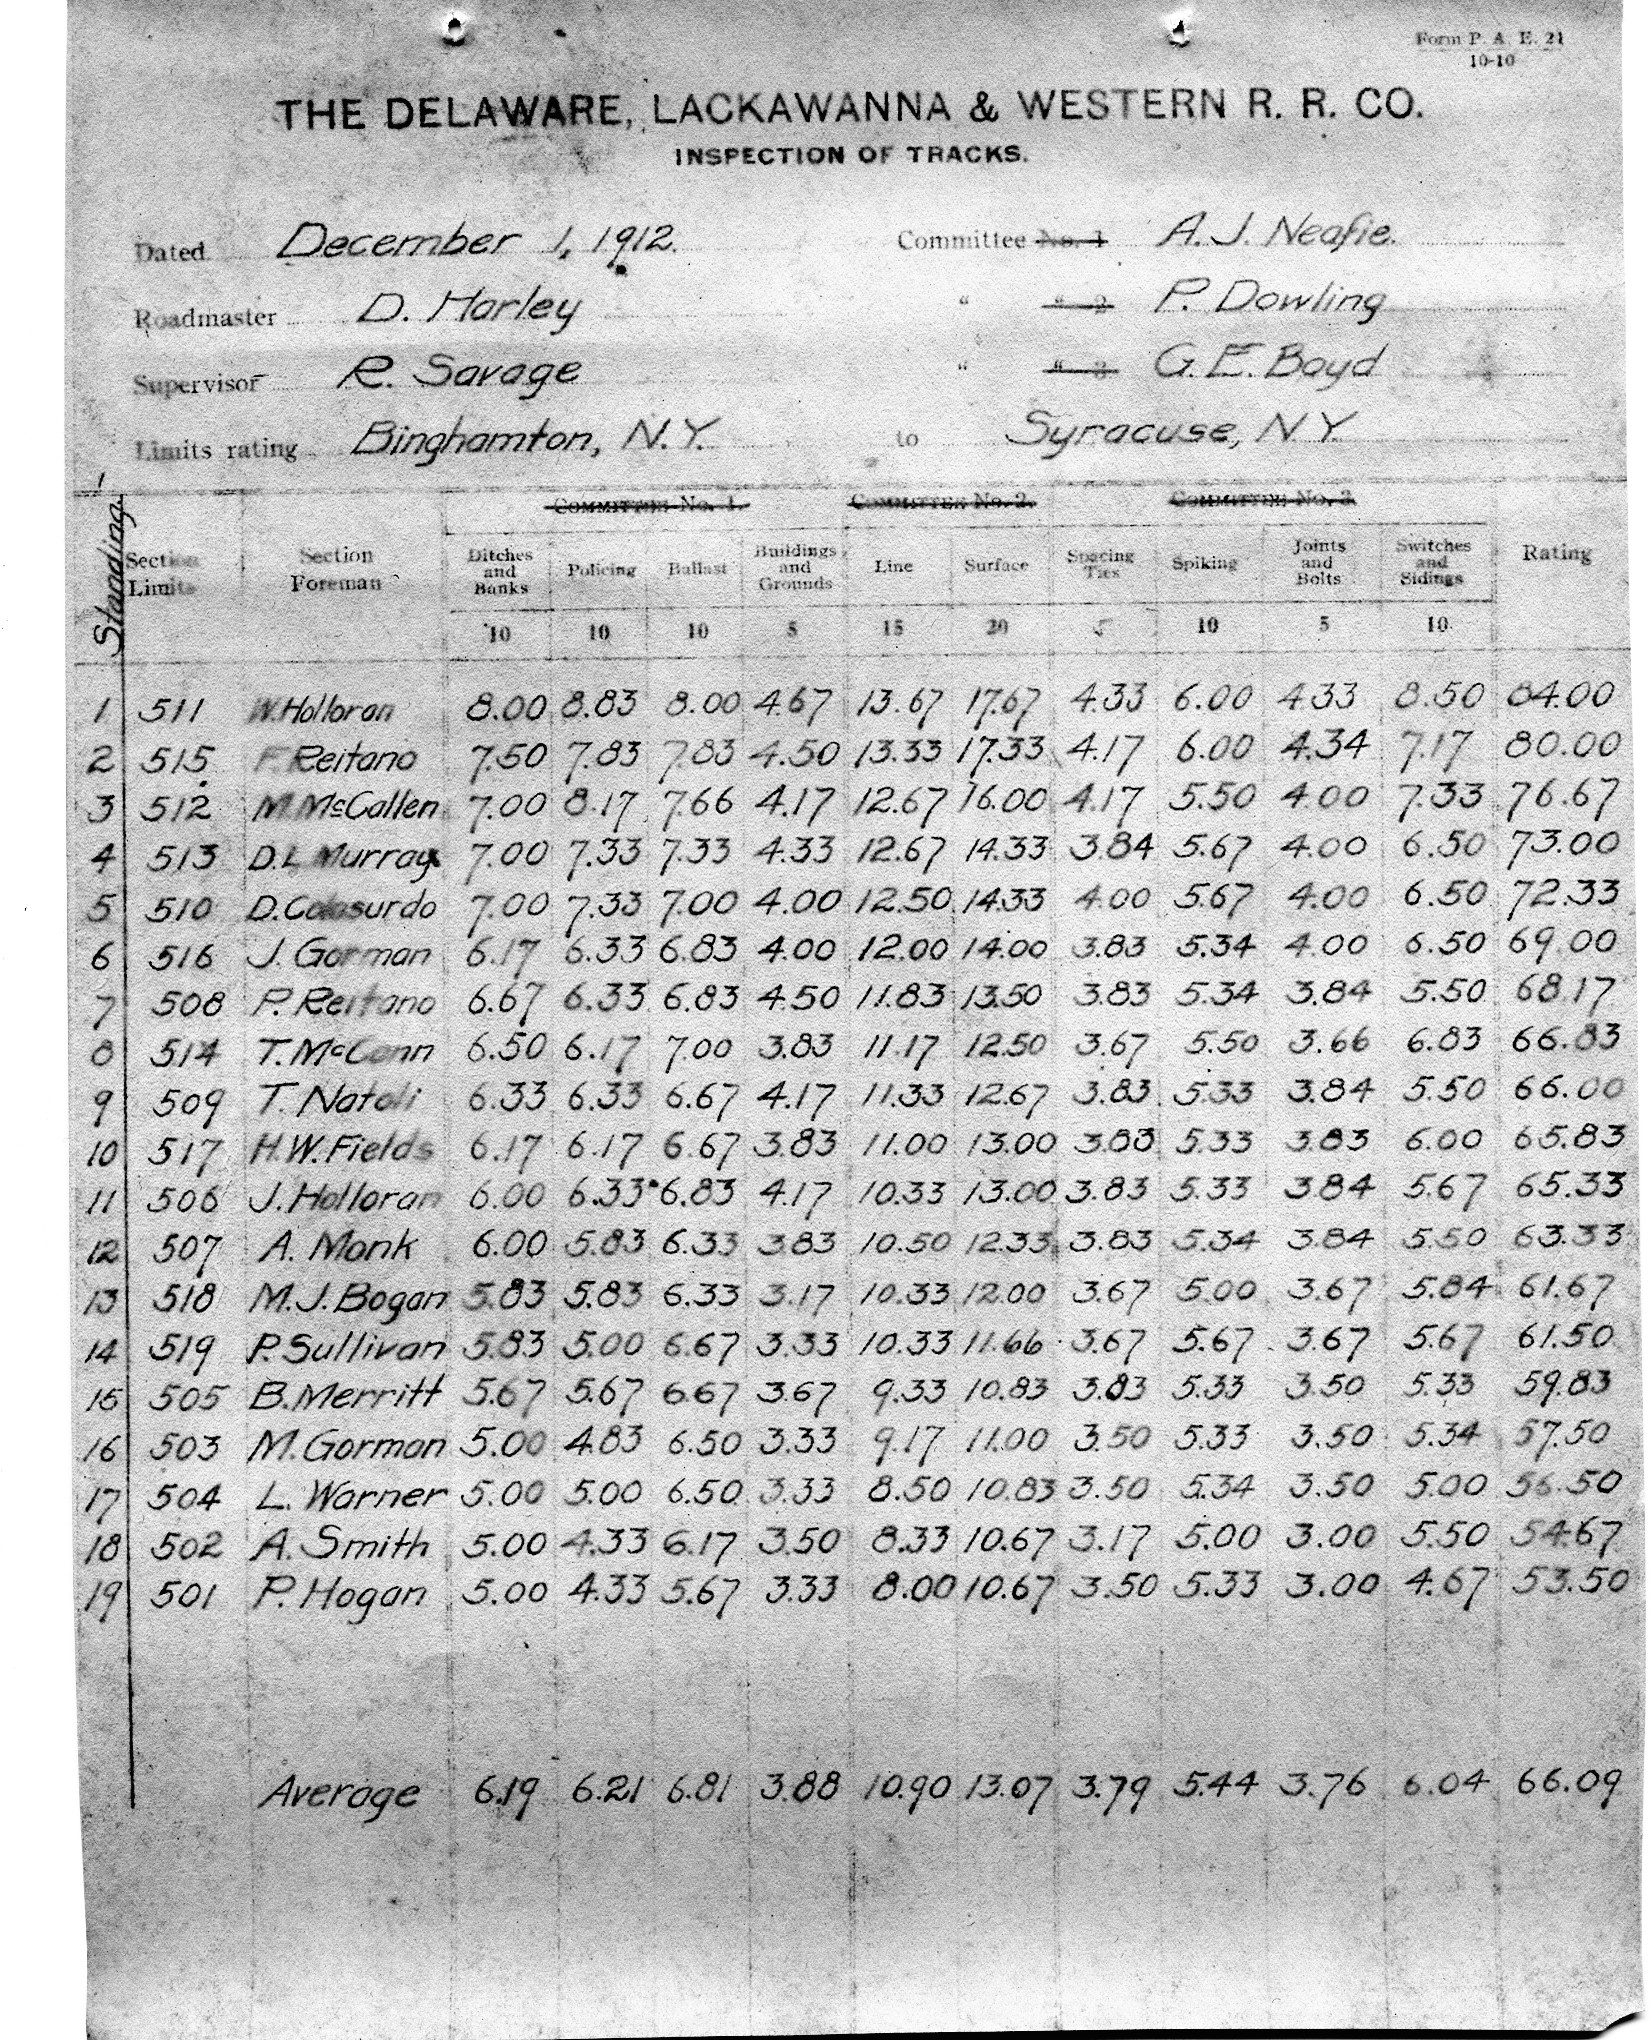 Form P. A. E. 21
10-10
THE DELAWARE, LACKAWANNA & WESTERN R. R. CO.
INSPECTION OF TRACKS.
Dated December 1, 1912. Committee No. 1 A. J. Neafie.
Roadmaster D. Harley " " 2 P. Dowling
Supervisor R. Savage " " 3 G. E. Boyd
Limits rating Binghamton, N.Y. to Syracuse, N.Y.
COMMITTEE No. 1. COMMITTEE No. 2. COMMITTEE No. 3
Standing. Section Limits Section Foreman Ditches and Banks Policing Ballast Buildings and Grounds Line Surface Spacing Ties Spiking Joints and Bolts Switches and Sidings Rating
10 10 10 5 15 20 5 10 5 10
1 511 W. Holloran 8.00 8.83 8.00 4.67 13.67 17.67 4.33 6.00 4.33 8.50 84.00
2 515 F. Reitano 7.50 7.83 7.83 4.50 13.33 17.33 4.17 6.00 4.34 7.17 80.00
3 512 M. McCallen 7.00 8.17 7.66 4.17 12.67 16.00 4.17 5.50 4.00 7.33 76.67
4 513 D. L. Murray 7.00 7.33 7.33 4.33 12.67 14.33 3.84 5.67 4.00 6.50 73.00
5 510 D. Colasurdo 7.00 7.33 7.00 4.00 12.50 14.33 4.00 5.67 4.00 6.50 72.33
6 516 J. Gorman 6.17 6.33 6.83 4.00 12.00 14.00 3.83 5.34 4.00 6.50 69.00
7 508 P. Reitano 6.67 6.33 6.83 4.50 11.83 13.50 3.83 5.34 3.84 5.50 68.17
8 514 T. McCann 6.50 6.17 7.00 3.83 11.17 12.50 3.67 5.50 3.66 6.83 66.83
9 509 T. Natoli 6.33 6.33 6.67 4.17 11.33 12.67 3.83 5.33 3.84 5.50 66.00
10 517 H. W. Fields 6.17 6.17 6.67 3.83 11.00 13.00 3.83 5.33 3.83 6.00 65.83
11 506 J. Holloran 6.00 6.33 6.83 4.17 10.33 13.00 3.83 5.33 3.84 5.67 65.33
12 507 A. Monk 6.00 5.83 6.33 3.83 10.50 12.33 3.83 5.34 3.84 5.50 63.33
13 518 M. J. Bogan 5.83 5.83 6.33 3.17 10.33 12.00 3.67 5.00 3.67 5.84 61.67
14 519 P. Sullivan 5.83 5.00 6.67 3.33 10.33 11.66 3.67 5.67 3.67 5.67 61.50
15 505 B. Merritt 5.67 5.67 6.67 3.67 9.33 10.83 3.83 5.33 3.50 5.33 59.83
16 503 M. Gorman 5.00 4.83 6.50 3.33 9.17 11.00 3.50 5.33 3.50 5.34 57.50
17 504 L. Warner 5.00 5.00 6.50 3.33 8.50 10.83 3.50 5.34 3.50 5.00 56.50
18 502 A. Smith 5.00 4.33 6.17 3.50 8.33 10.67 3.17 5.00 3.00 5.50 54.67
19 501 P. Hogan 5.00 4.33 5.67 3.33 8.00 10.67 3.50 5.33 3.00 4.67 53.50
Average 6.19 6.21 6.81 3.88 10.90 13.07 3.79 5.44 3.76 6.04 66.09